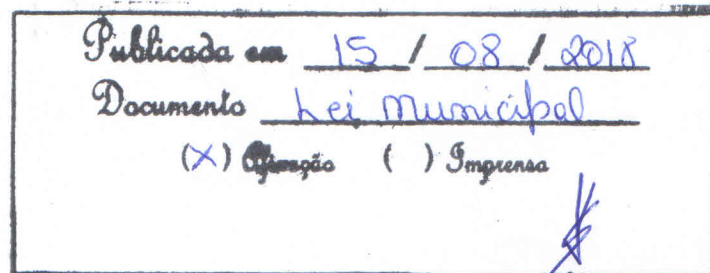 Publicada em 15 / 08 / 2018
Documento Lei Municipal
(X) Afixação ( ) Imprensa